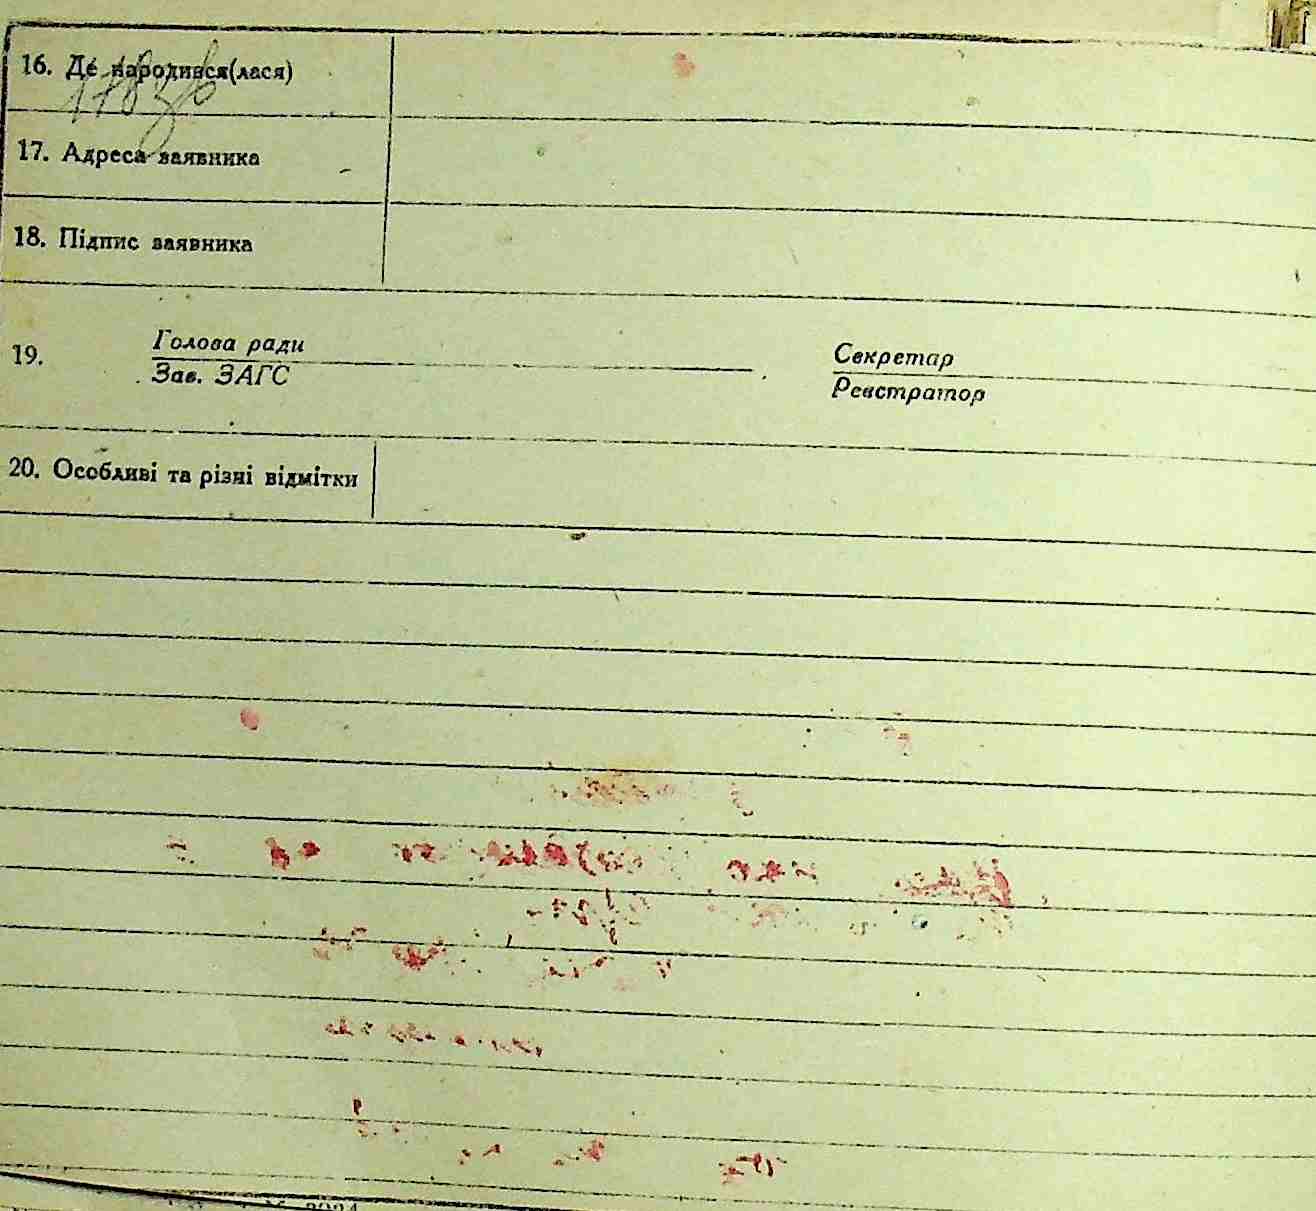 16. Де народився(лася)
17. Адреса заявника
18. Підпис заявника
19. Голова ради Секретар
Зав. ЗАГС Реєстратор
20. Особливі та різні відмітки